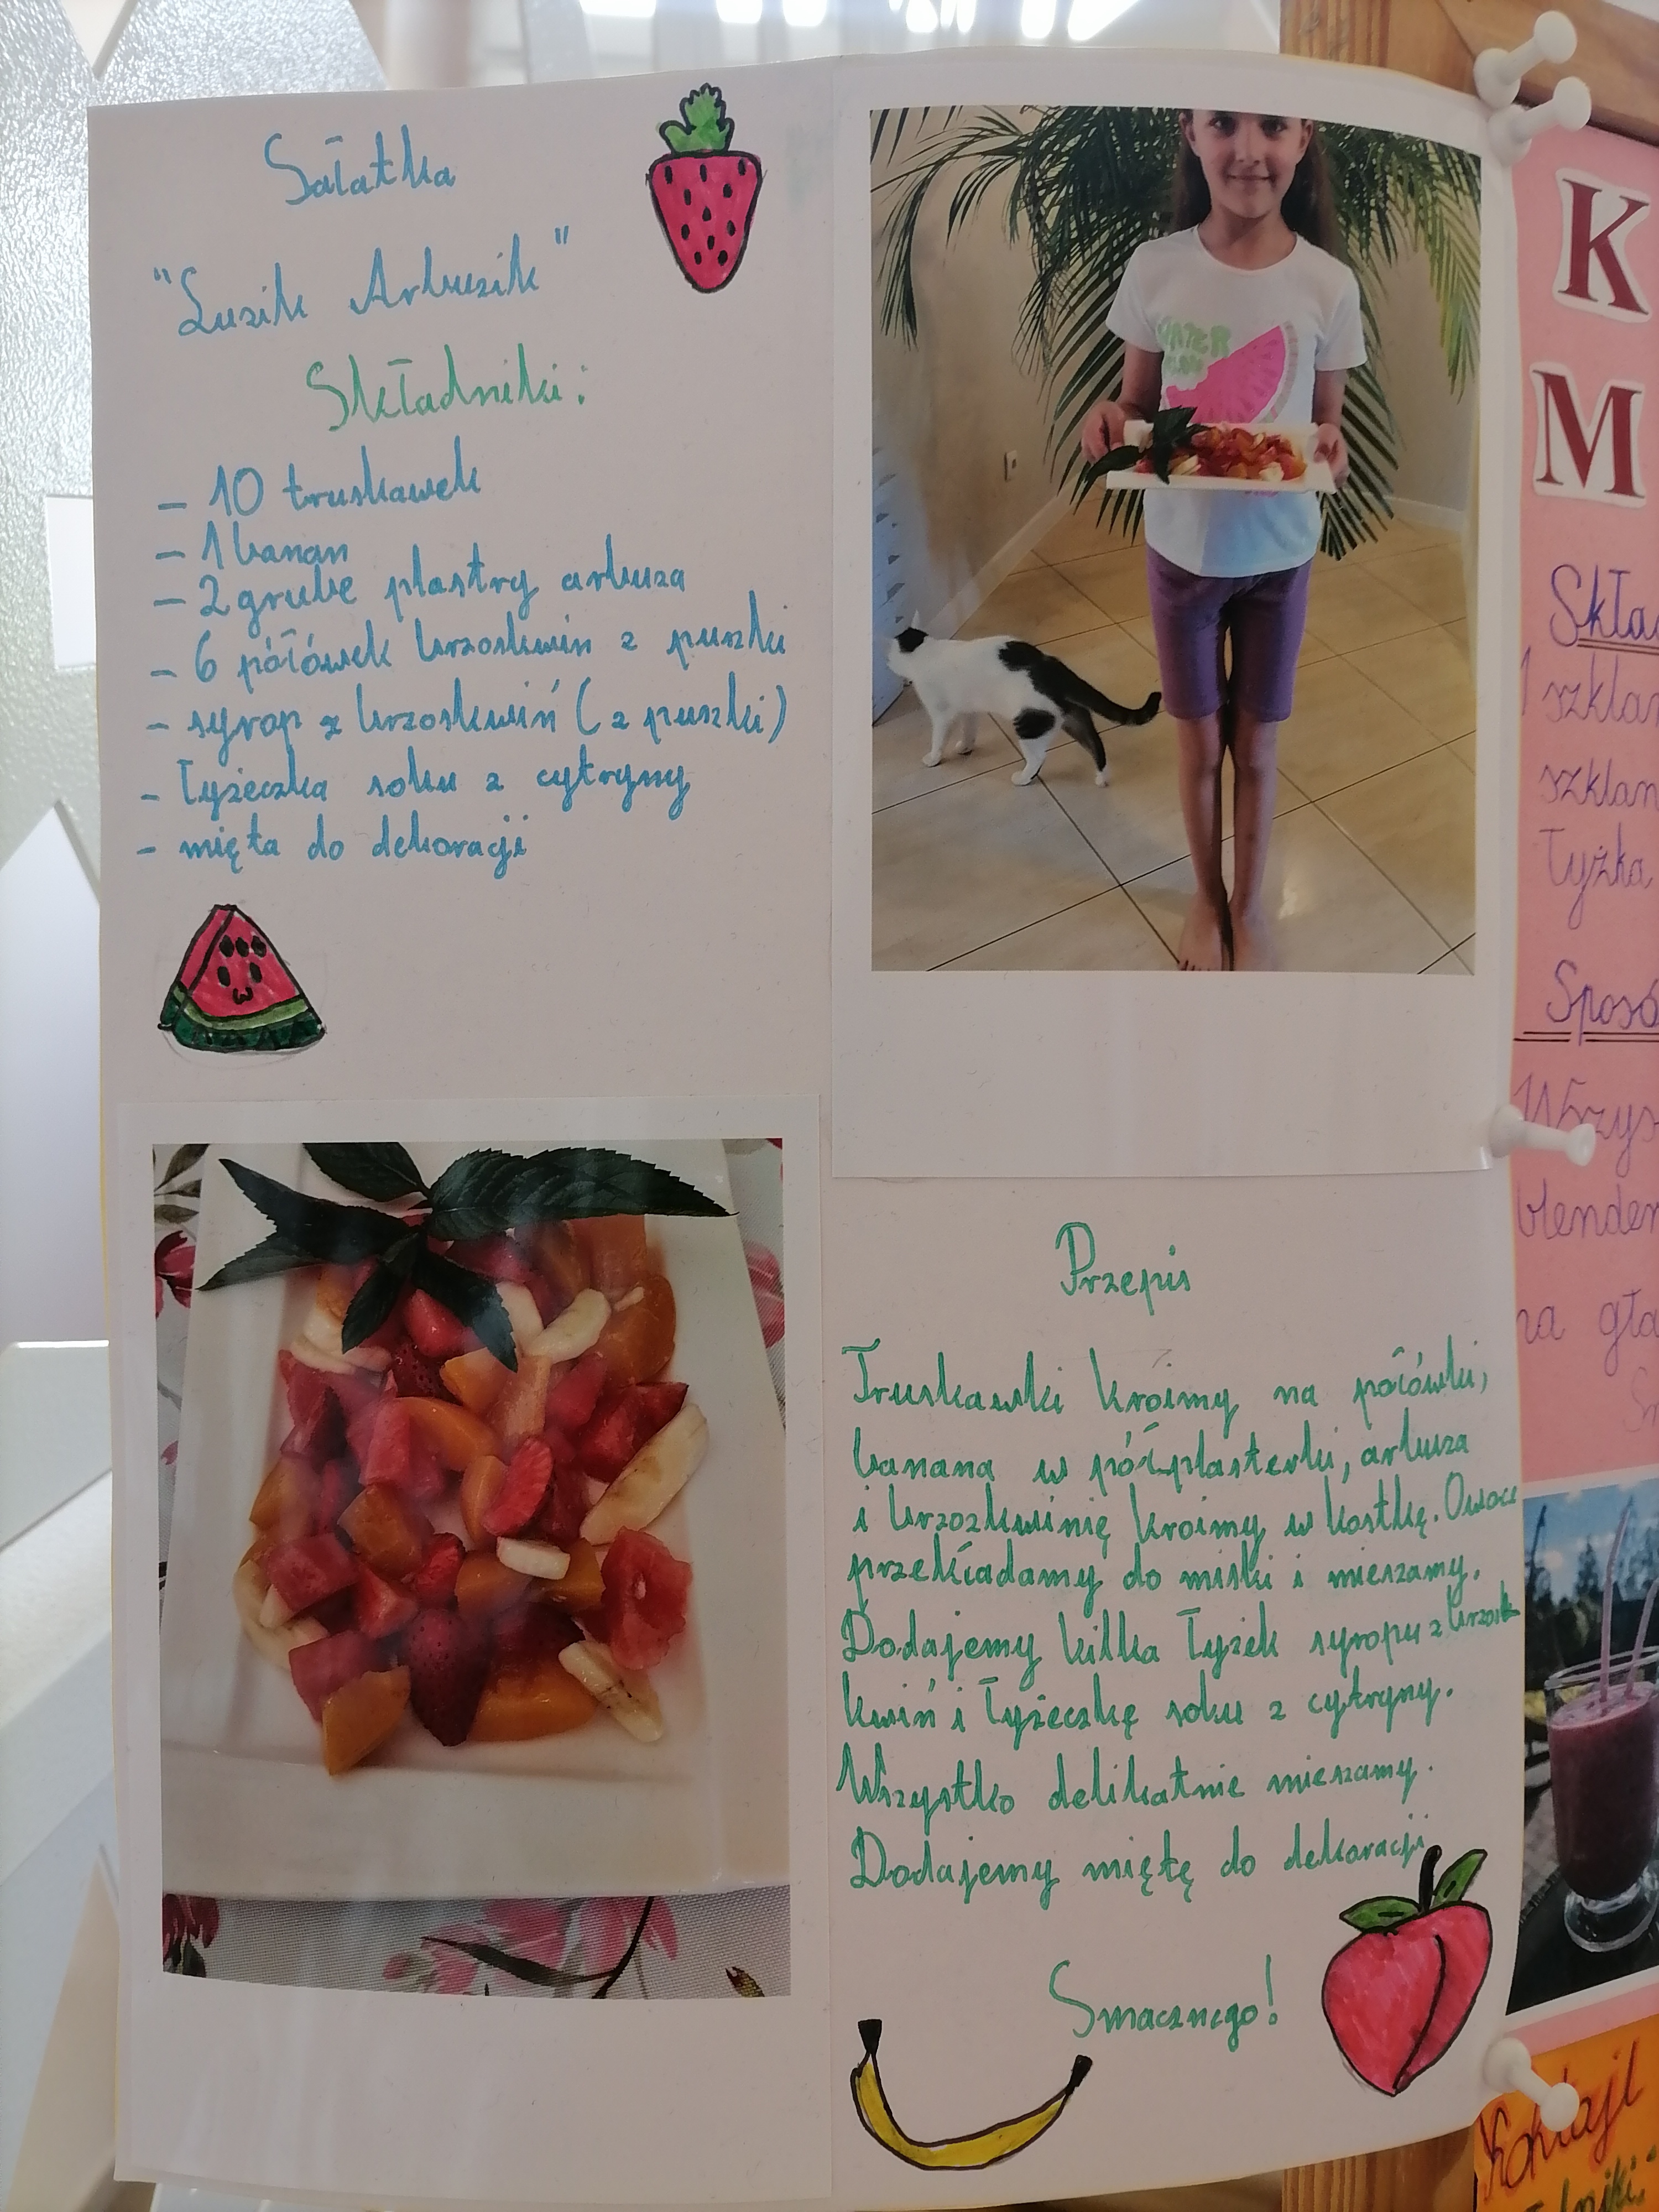 Sałatka
"Luzik Arbuzik"
Składniki:
- 10 truskawek
- 1 banan
- 2 grube plastry arbuza
- 6 połówek brzoskwiń z puszki
- syrop z brzoskwiń (z puszki)
- łyżeczka soku z cytryny
- mięta do dekoracji
WATER
Przepis
Truskawki kroimy na połówki,
banana w półplasterki, arbuza
i brzozkwinię kroimy w kostkę. Owoce
przekładamy do miski i mieszamy.
Dodajemy kilka łyżek syropu z brzosk
kwiń i łyżeczkę soku z cytryny.
Wszystko delikatnie mieszamy.
Dodajemy miętę do dekoracji.
Smacznego!
K
M
Skła
1 szklan
szklan
łyżka
Sposó
Wszys
blender
na gła
Koktajl